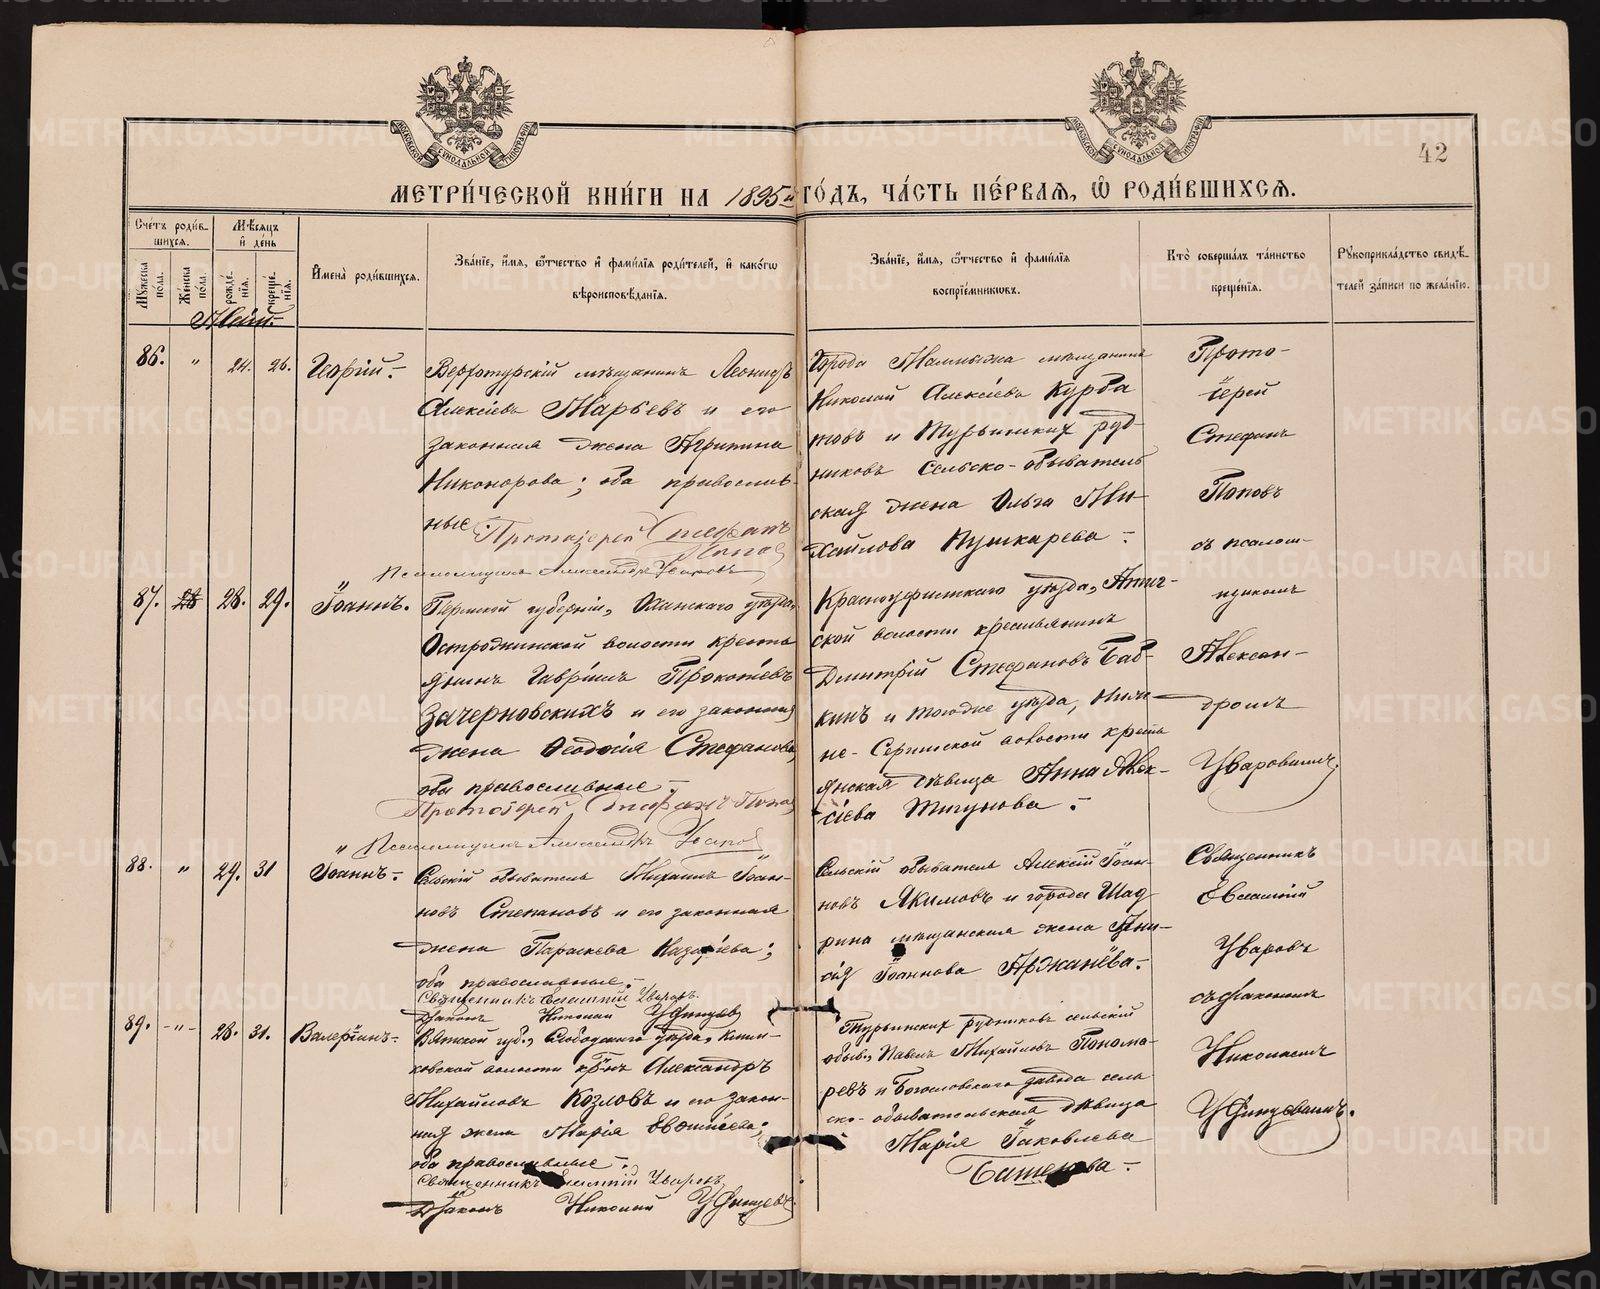 МЕТРИ́ЧЕСКОЙ КНИ́ГИ НА 1895й ГО́ДЪ, ЧА́СТЬ ПЕ́РВАЯ, Ѿ РОДИ́ВШИХСЯ.
42
МОСКОВСКОЙ СѴНОДАЛЬНОЙ ТИПОГРАФІИ
МОСКОВСКОЙ СѴНОДАЛЬНОЙ ТИПОГРАФІИ
Сче́тъ роди́в-
шихся.
Му́жеска по́ла.
Же́нска по́ла.
Мѣ́сяцъ
и҆ де́нь
рожде́нїя.
креще́нїя.
И҆мена̀ роди́вшихся.
Зва́нїе, и҆́мя, ѻ҆́тчество и҆ фами́лїя роди́телей, и҆ како́гѡ
вѣроисповѣ́данїя.
Зва́нїе, и҆́мя, ѻ҆́тчество и҆ фами́лїя
воспрїе́мникѡвъ.
Кто̀ соверша́лъ та́инство
креще́нїя.
Рꙋкоприкла́дство свидѣ́-
телей за́писи по жела́нїю.
Май.
86. " 24. 26. Георгій.
Верхотурскій мѣщанинъ Леонидъ
Алексѣевъ Марьевъ и его
законная жена Агрипина
Никонорова; оба православ-
ные.
Протоіерей Стефанъ
Поповъ
Псаломщикъ Александръ Уваровъ
Города мѣщанинъ
Николай Алексѣевъ Курба
товъ и Турьинскихъ руд-
никовъ сельско-обыватель
ская жена Ольга Ми-
хайлова Пушкарева.
Прото-
іерей
Стефанъ
Поповъ
съ псалом-
щикомъ
Алексан-
дромъ
Уваровымъ.
87. 28. 29. Іоаннъ.
Пермской губерніи, Оханскаго уѣзда,
Острожинской волости кресть
янинъ Гавріилъ Прокопіевъ
Зачерновскихъ и его законная
жена Ѳеодосія Стефанова,
оба православные.
Протоіерей Стефанъ Поповъ
Псаломщикъ Александръ Уваровъ
Красноуфимскаго уѣзда, Ачит-
ской волости крестьянинъ
Дмитрій Стефановъ Баб-
кинъ и тогоже уѣзда, Ниж-
не-Сергинской волости кресть
янская дѣвица Анна Алек-
сіева Тигунова.
88. " 29. 31 Іоаннъ.
Сельскій обыватель Михаилъ Іоан-
новъ Степановъ и его законная
жена Параскева Назаріева;
оба православные.
Священникъ Евлампій Уваровъ.
Діаконъ Николай
Сельскій обыватель Алексій Іоан-
новъ Якимовъ и города Шад
рина мѣщанская жена
Іоаннова Аржанѣва.
Священникъ
Евлампій
Уваровъ
съ діакономъ
Николаемъ
89. -"- 28. 31. Валеріанъ.
Вятской губ., Слободскаго уѣзда,
ковской волости кр-нъ Александръ
Михайловъ Козловъ и его закон-
ная жена Марія Евѳиміева;
оба православные.
Священникъ Евлампій Уваровъ
Діаконъ Николай
Турьинскихъ рудниковъ сельскій
обыв., Павелъ Михайловъ Понома-
ревъ и Богословскаго завода сель
ско-обывательская дѣвица
Марія Іаковлева